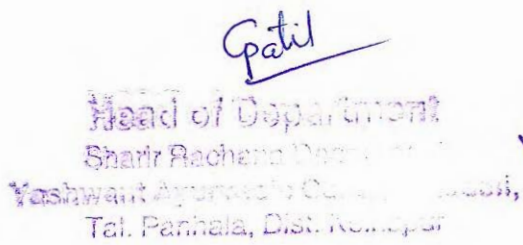 Gpatil
Head of Department
Sharir Rachana
Yashwant Ayurvedic
Tal. Panhala, Dist. Kolhapur